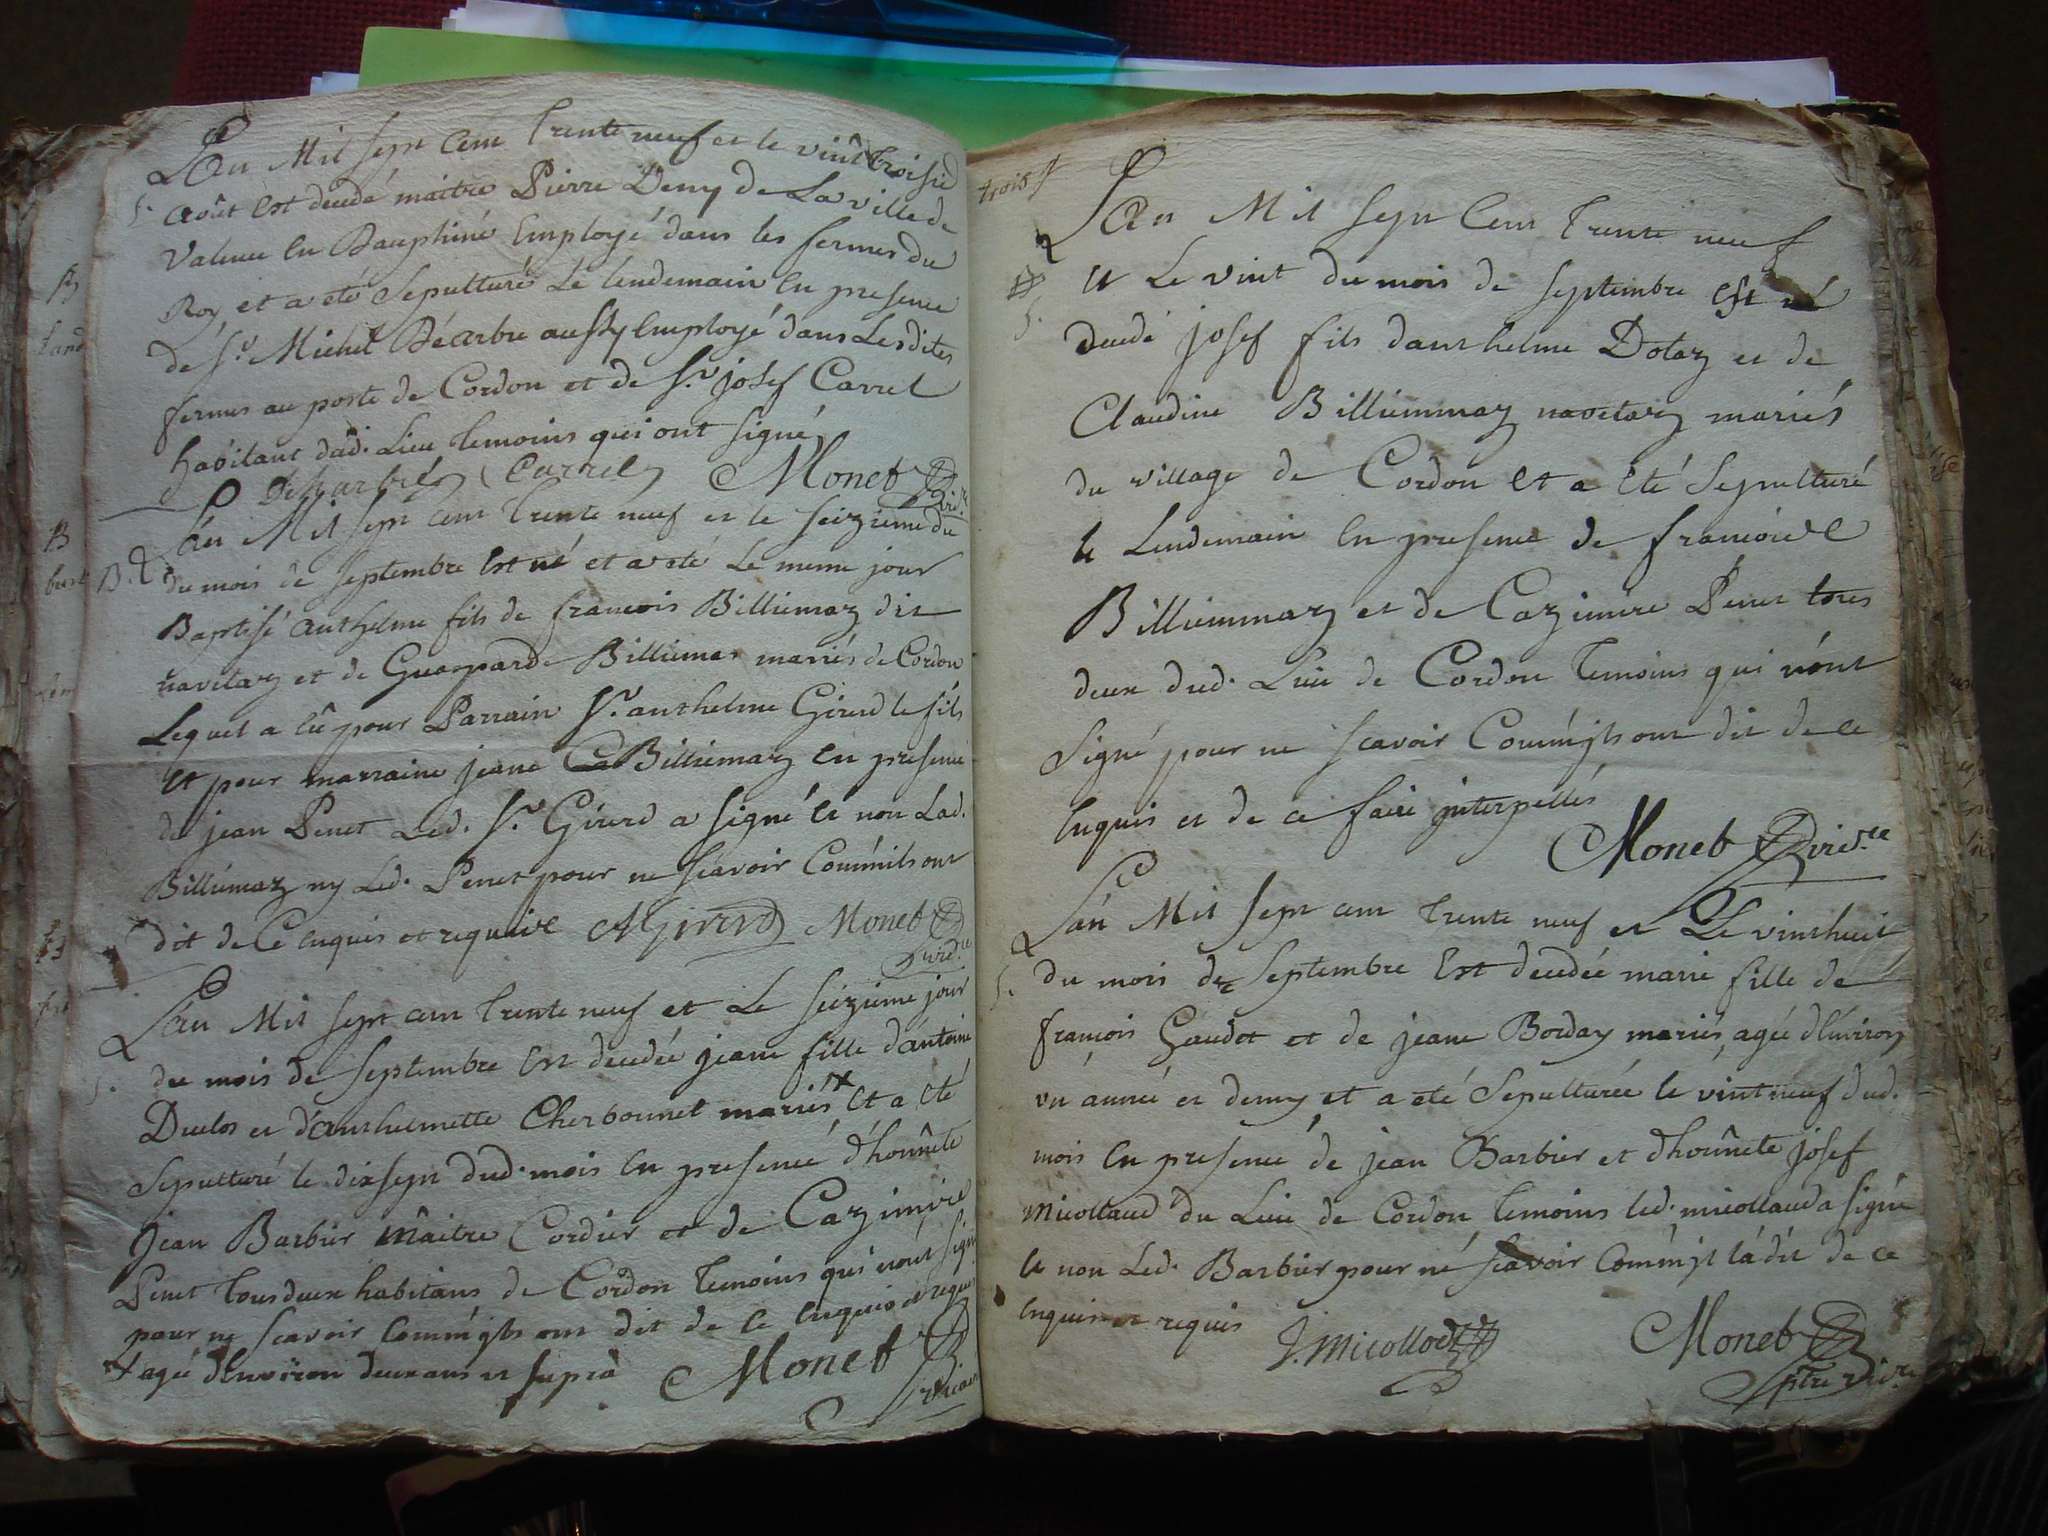 L'an Mil sept cent trente neuf et le vint troisie
S. août est decedé maitre Pierre Demy de La ville de
Valence en Dauphiné Employé dans les fermes du
Roy et a eté Sepulturé Le lendemain en presence
de Sr Michel Décarbre aussy Employé dans Lesdites
fermes au poste de Cordon et de Sr josef Carrel
habitant dud. Lieu temoins qui ont signé
Carrel Monet
L'an Mil sept cent trente neuf et le seizieme du
B. du mois de septembre est né et a eté Le meme jour
Baptisé anthelme fils de francois Billiemaz dit
navetaz et de Guaspardе Billiemas mariés de Cordon
Lequel a eû pour Parrain Sr. anthelme Girerd le fils
et pour marraine jeane Billiemaz en presence
de jean Penet Led. Sr. Girerd a signé et non Lad.
Billiémaz ny Led. Penet pour ne scavoir Comm'ils ont
dit de Ce enquis et requis AGirerd Monet
vic.re
L'an Mil sept cent trente neuf et Le seizieme jour
S. du mois de septembre est decedée jeane fille d'antoine
Duclos et d'anthelmette Cherbonnet mariés + et a eté
Sepulturé le dixsept dud. mois en presence d'honnête
Jean Barbier maître Cordier et de Cazimire
Penet tous deux habitans de Cordon temoins qui n'ont sign
pour ne scavoir Comm'ils ont dit de Ce enquis et requis
+ agée d'Environ deux ans ut suprà Monet
vicaire
trois
L'an Mil sept Cent trente neuf
et Le vint du mois de septembre est né
S. decedé josef fils d'anthelme Dolaz et de
Claudine Billiemmaz navetaz mariés
du village de Cordon et a eté Sepulturé
le Lendemain en presence de francois
Billiemmaz et de Cazimire Penet tous
deux dud. Lieu de Cordon temoins qui n'ont
signé pour ne scavoir Comm'ils ont dit de ce
enquis et de ce faire interpellés
Monet vic.re
L'an Mil sept cent trente neuf et Le vinthuit
S. du mois de Septembre est decedée marie fille de
francois Gaudet et de jeane Borday mariés, agée d'Environ
un année et demy et a eté Sepulturée le vintneuf dud.
mois en presence de jean Barbier et d'honnete josef
micollaud du Lieu de Cordon temoins led. micollaud a signé
et non Led. Barbier pour né scavoir Comm'il l'a dit de ce
enquis et requis J. micollod Monet
ptre vic.re